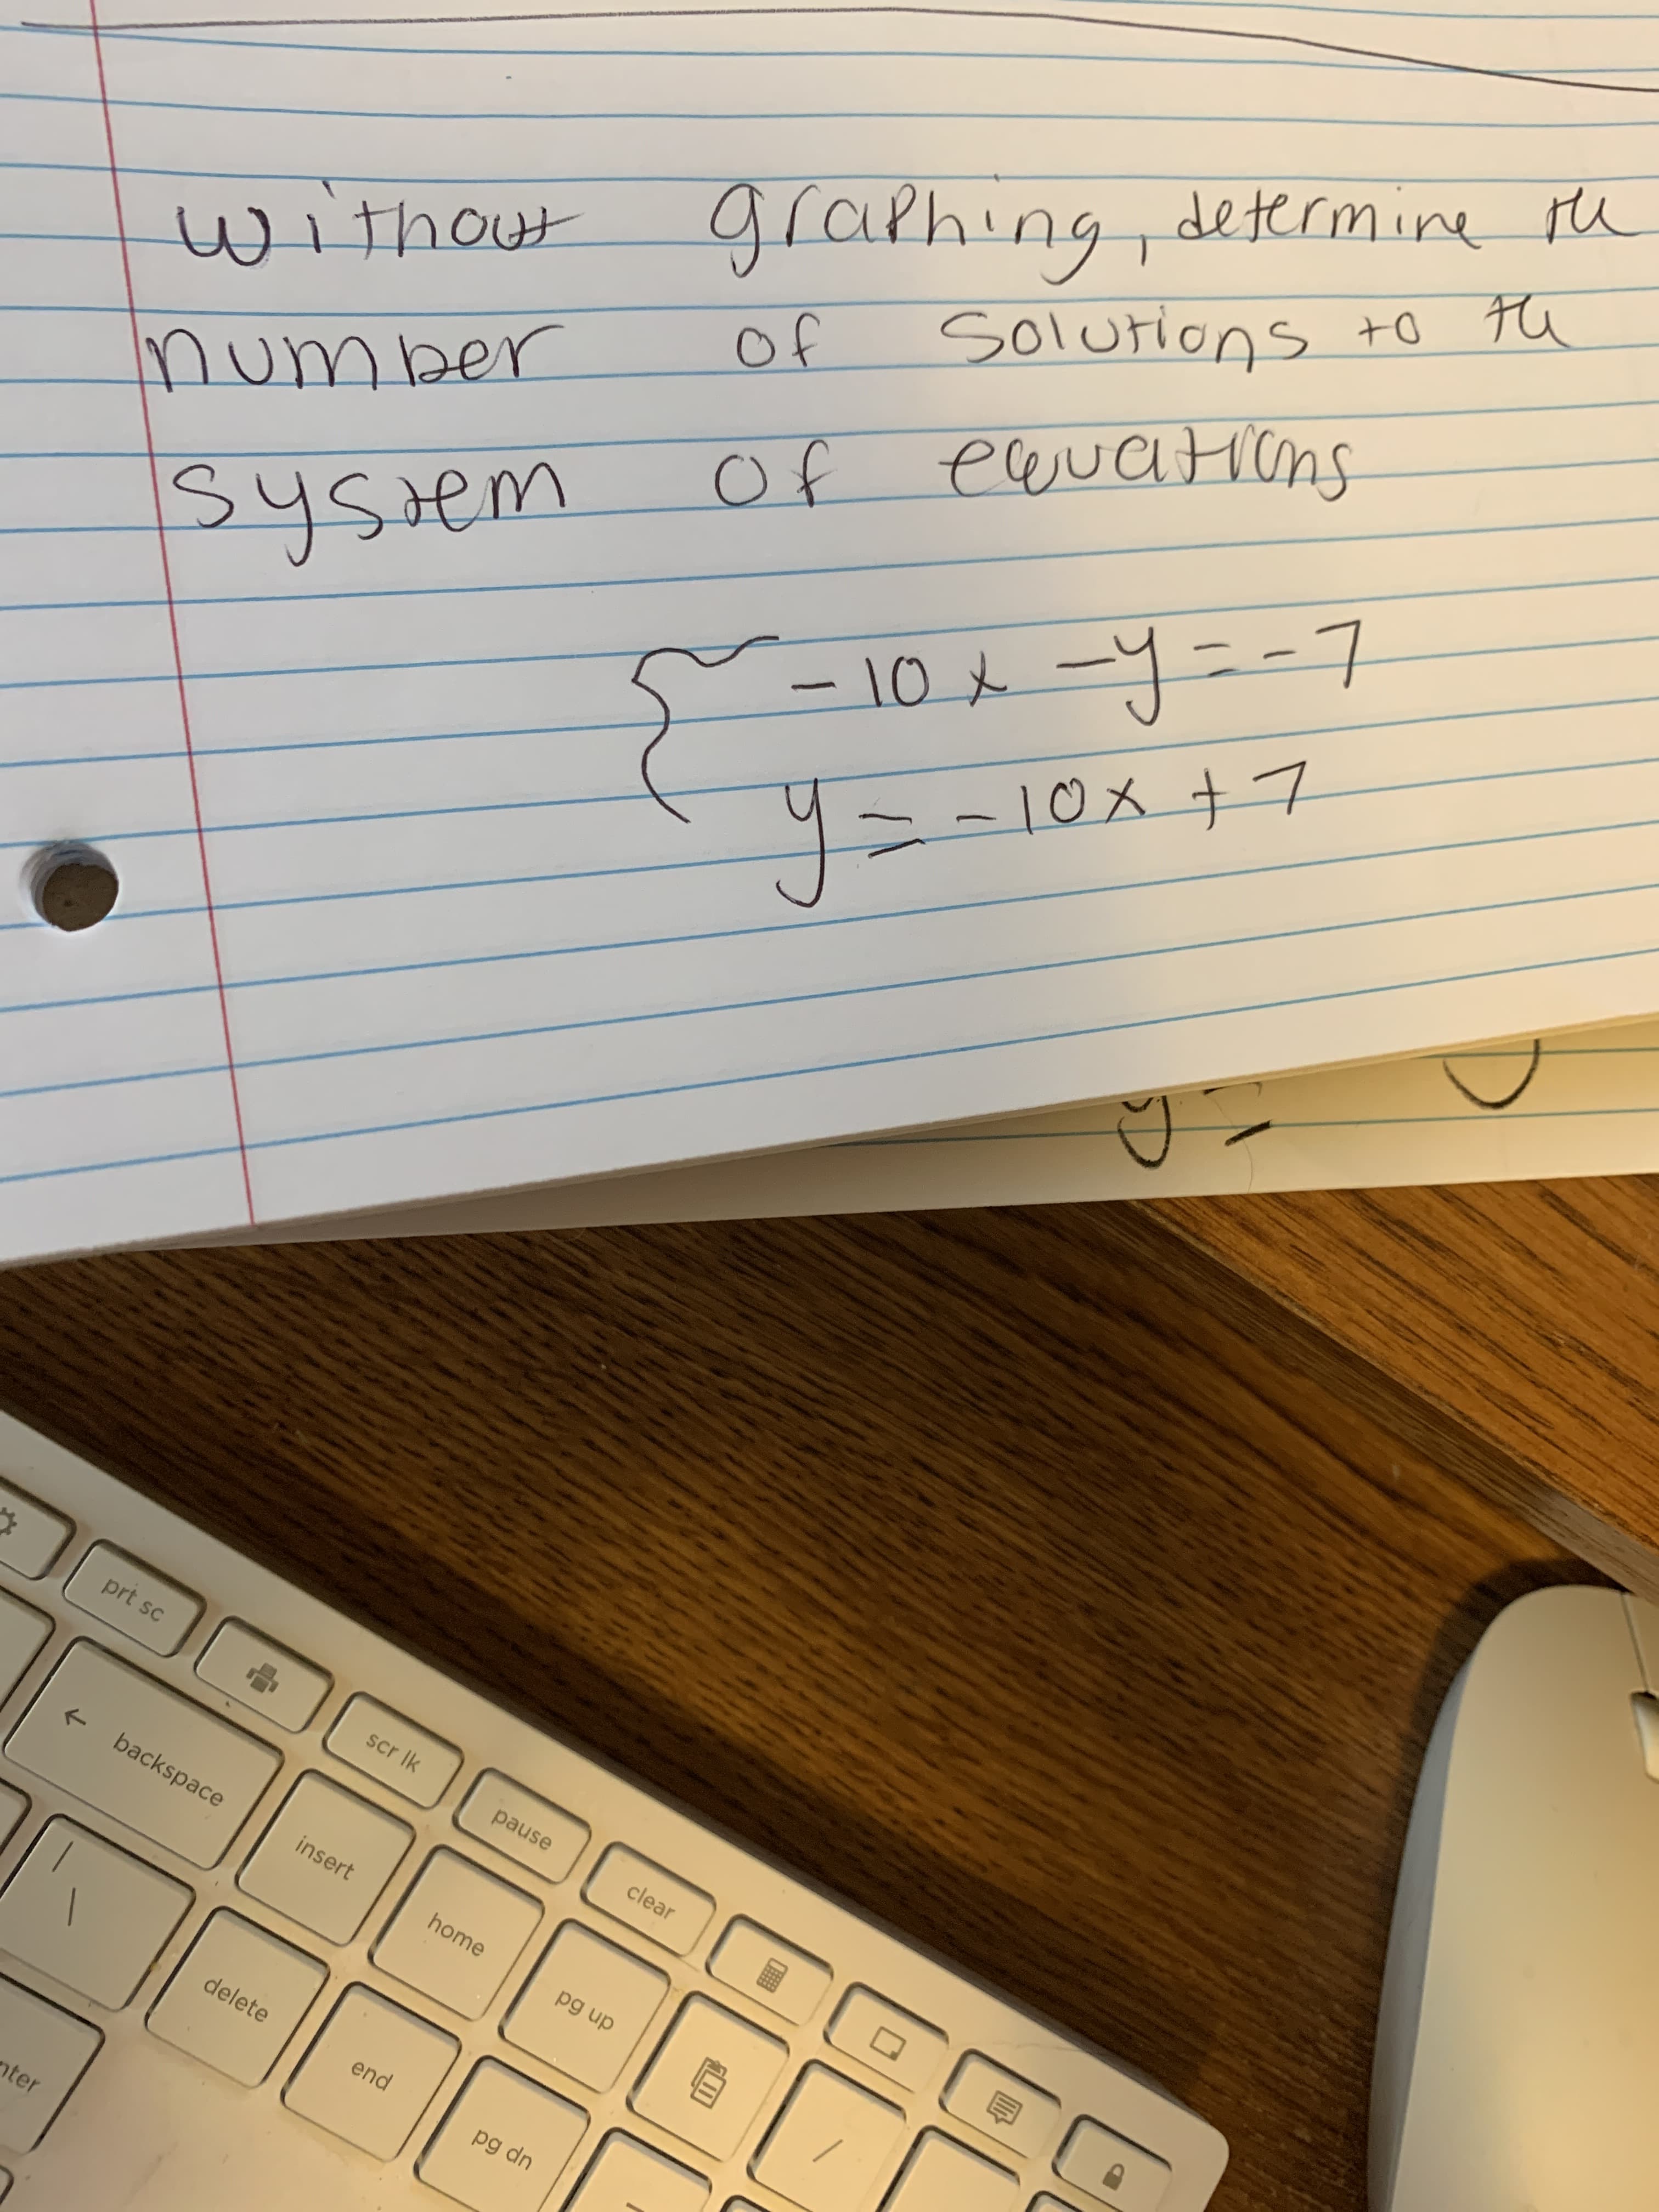 without graphing, determine the
number of solutions to the
system of equations
-10x -y = -7
y = -10x + 7
y =
prt sc
← backspace
scr lk
pause
insert
clear
| \
home
delete
pg up
nter
end
/
pg dn